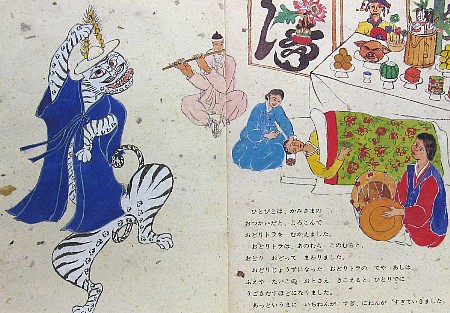 ひとびとは、かみさまの
おつかいだと、よろこんで
おどりトラを むかえました。
おどりトラは、あのむら このむらと、
おどり おどって まわりました。
おどりじょうずになった おどりトラの てや あしは、
ふえや たいこの おとさえ きこえると、ひとりでに
うごきだすほどになりました。
あっというまに いちねんが すぎ、にねんが すぎていきました。